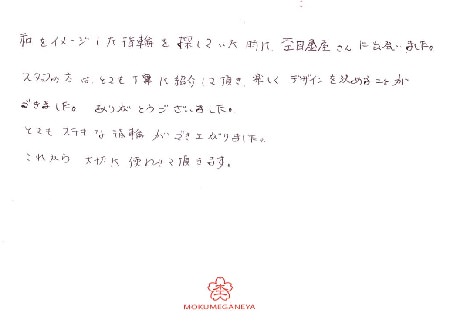 和をイメージした指輪を探していた時に、杢目金屋さんに出会いました。
スタッフの方は、とても丁寧に紹介して頂き、楽しくデザインを決めることが
できました。ありがとうございました。
とてもステキな指輪ができ上がりました。
これから大切に使わせて頂きます。
MOKUMEGANEYA